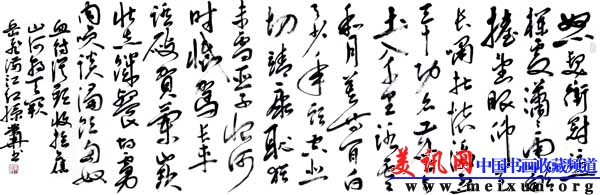 怒髮衝冠凭
欄處瀟瀟雨歇
擡望眼仰天
长啸壮怀激烈
三十功名尘与
土八千里路雲
和月莫等闲白
了少年头空悲
切靖康耻猶
未雪臣子恨何
时憾駕长车
踏破賀蘭山缺
壮志饑餐胡虜
肉笑谈渴饮匈奴
血待從頭收拾舊
山河朝天闕
岳飛满江红
美讯网
中国书画收藏频道
www.meixun.org